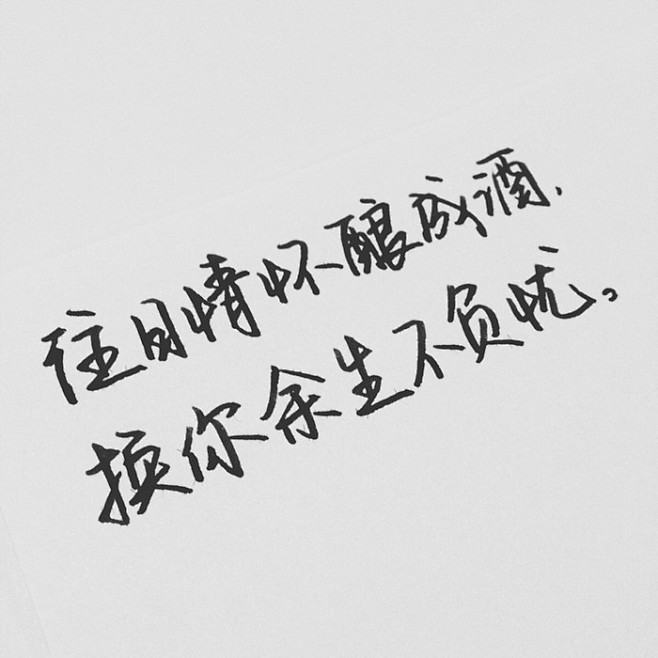 往日情怀酿成酒，
换你余生不负忧。